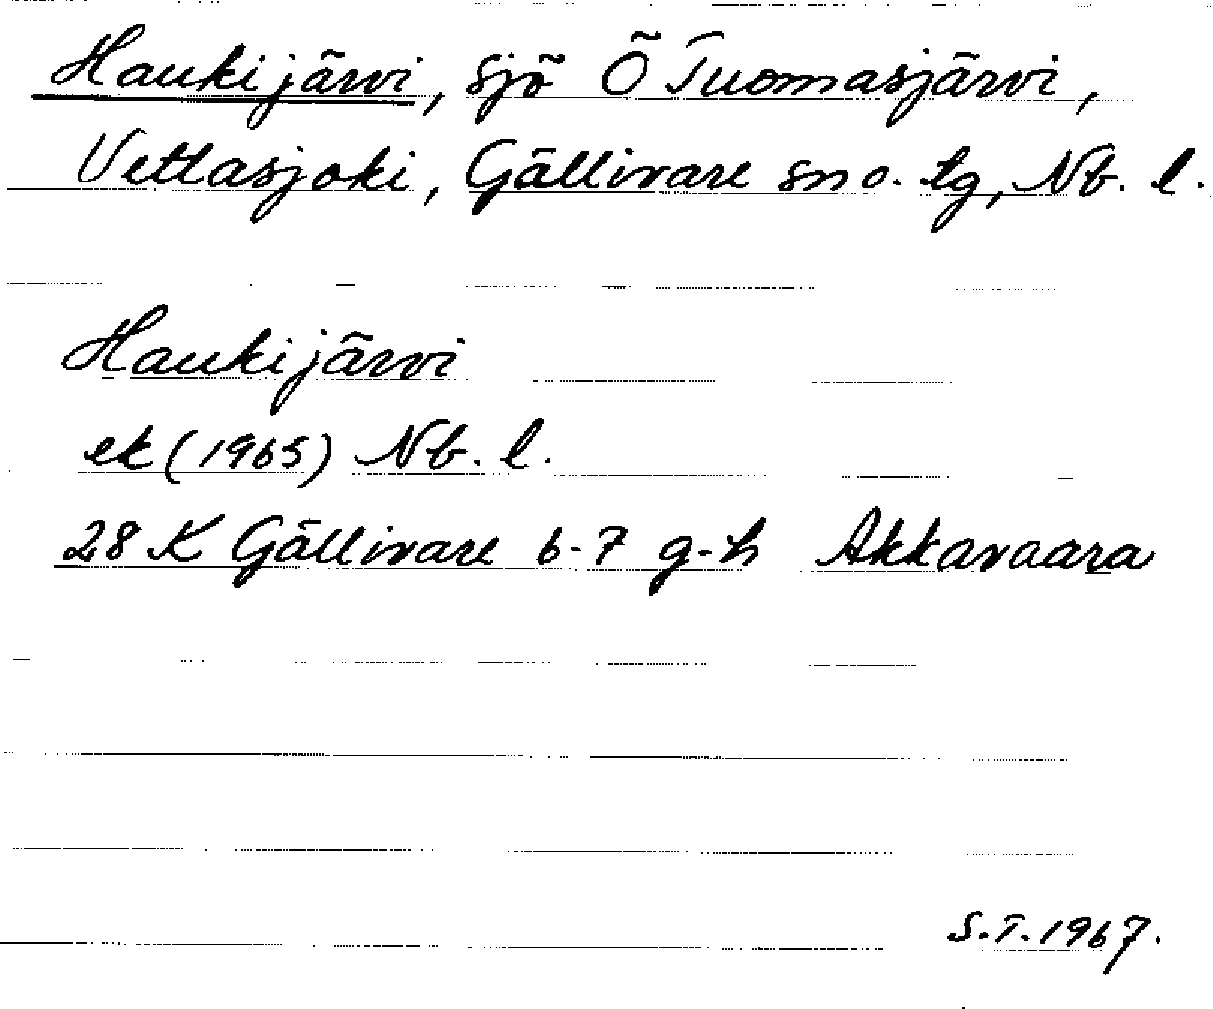 Haukijärvi, sjö Ö Tuomasjärvi,
Vettasjoki, Gällivare sn o. tg, Nb. l.
Haukijärvi
ek (1965) Nb. l.
28 K Gällivare 6-7 g-h Akkavaara
S.T. 1967.